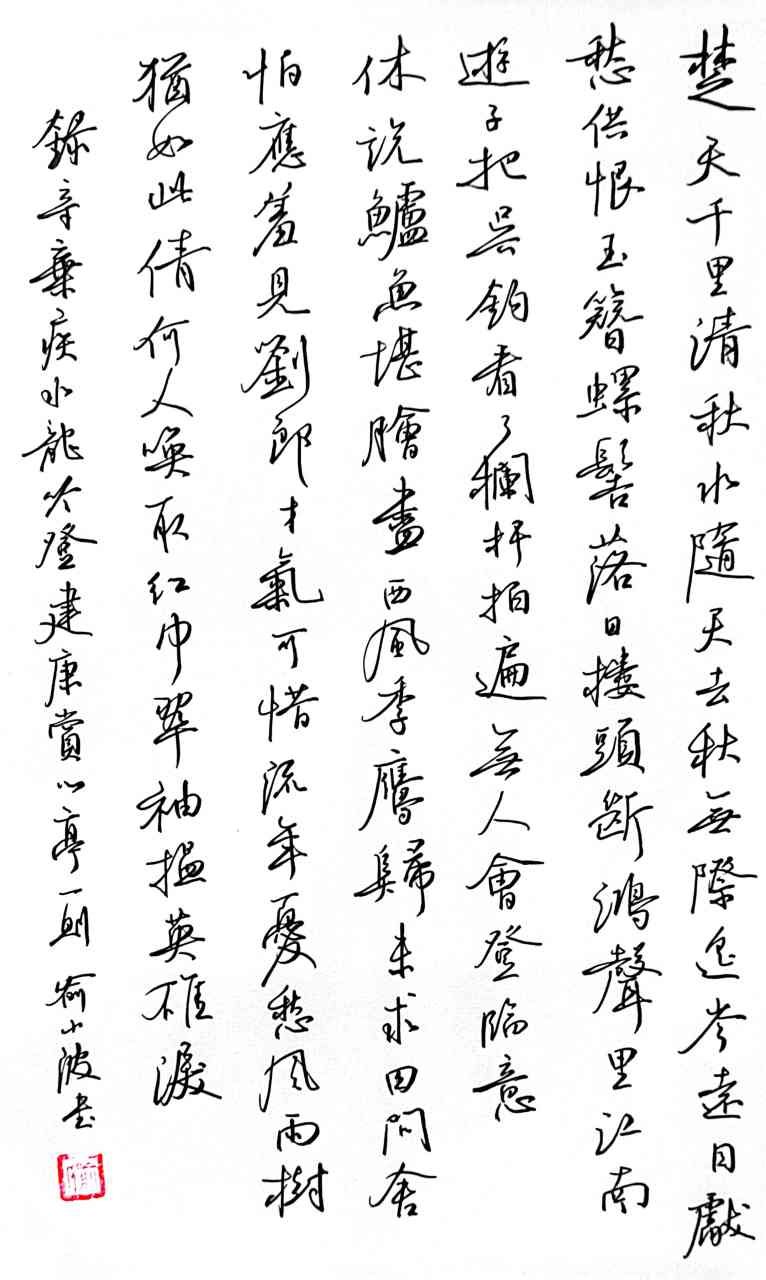 楚天千里清秋水隨天去秋無際遥岑遠目獻
愁供恨玉簪螺髻落日樓頭斷鴻聲里江南
遊子把吴鈎看了欄杆拍遍無人會登臨意
休説鱸魚堪膾盡西風季鷹歸未求田問舍
怕應羞見劉郎才氣可惜流年憂愁風雨樹
猶如此倩何人唤取红巾翠袖揾英雄淚
録辛棄疾水龍吟登建康賞心亭一則 俞小波书